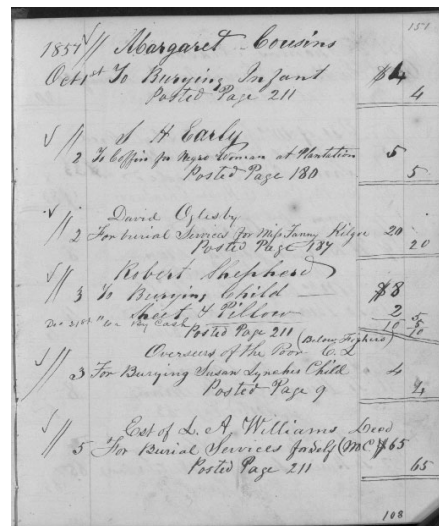 151
1857 // Margaret Cousins
Oct 1st To Burying Infant $4
Posted Page 211 4
√ // S H Early
2 To Coffin for Negro Woman at Plantation 5
Posted Page 180 5
√ // David Oglesby
2 For burial Services for Miss Fanny Kilgore 20
Posted Page 187 20
√ // Robert Shepherd
3 To Burying Child — $8
Sheet & Pillow 2
Dec 31st By Cash 10 5
Posted Page 211 (Below Figures) 10
Overseers of the Poor C. L
√ // 3 For Burying Susan Lynches Child 4
Posted Page 9 4
√ // Est of L. A Williams Deed
5 For Burial Services for Self (M C) $65
Posted Page 211 65
108